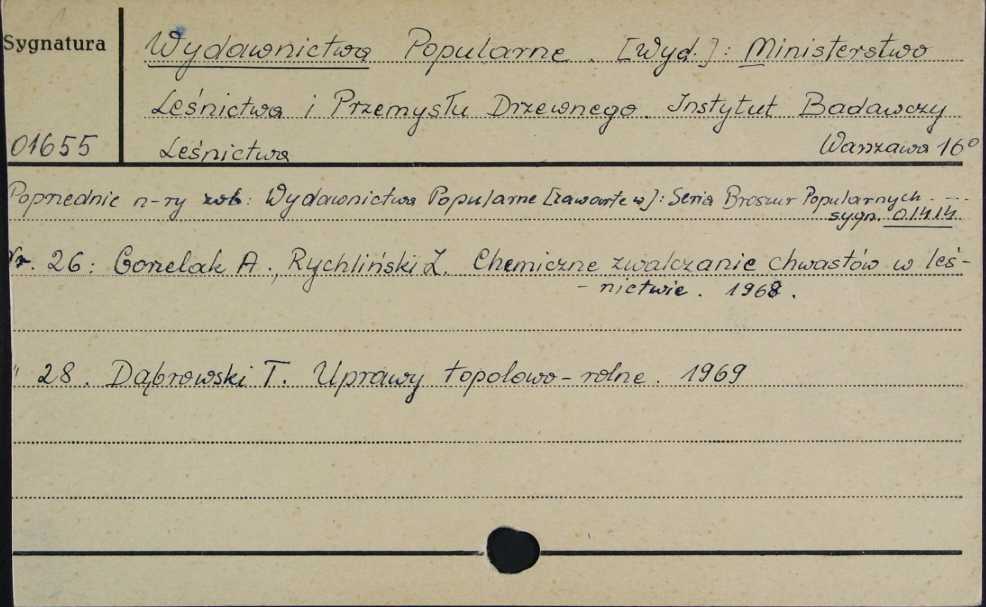 Sygnatura
Wydawnictwa Popularne. [Wyd.]: Ministerstwo
Leśnictwa i Przemysłu Drzewnego. Instytut Badawczy
01655
Leśnictwa Warszawa 16°
Poprzednie n-ry zob: Wydawnictwa Popularne [zawarte w]: Seria Broszur Popularnych ...
sygn. 01414
Nr. 26: Gorzelak A., Rychliński Z. Chemiczne zwalczanie chwastów w leś-
- nictwie. 1968.
" 28. Dąbrowski T. Uprawy topolowo-rolne. 1969